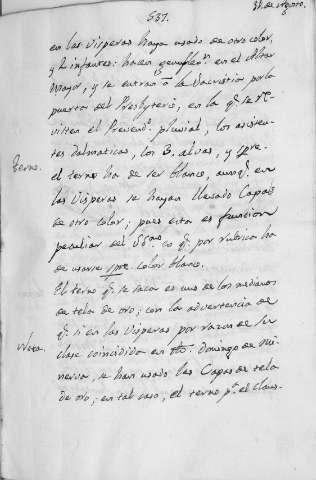 537.
31. de Agosto.
en las Visperas haya usado de otro color,
y 2 infantes: hacen genuflexn. en el Altar
Mayor, y se entran à la Sacristia por la
puerta del Presbyterio, en la qe. se re-
visten el Prevendo. pluvial, los asisten-
tes Dalmaticas, los 3. alvas, y spre.
Terno.
el terno ha de ser blanco, aunqe. en
las Visperas se hayan llevado Capas
de otro color; pues esta es funcion
peculiar del SSmo. co qe. por rubrica ha
de usarse spre. color blanco.
El terno qe. se saca es uno de los medianos
de tela de oro; con la advertencia de
qe. si en las Visperas por razon de ser
Nota.
clase coincidido en Domingo de Mi-
nerva, se han usado las Capas de tela
de oro; en tal caso, el terno pa. el claus-